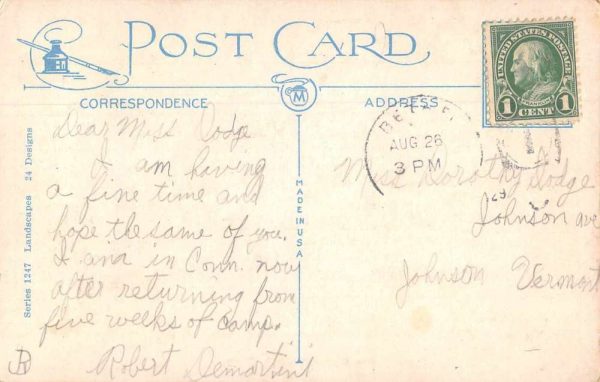 POST CARD
CORRESPONDENCE
ADDRESS
UNITED STATES POSTAGE
FRANKLIN
1 CENT 1
AUG 26
3 PM
29
Dear Miss Dodge
I am having
a fine time and
hope the same of you.
I am in Conn. now
after returning from
five weeks of camp.
Robert Demartini
Miss Dorothy Dodge
Johnson ave
Johnson Vermont
MADE IN U.S.A.
M
Series 1247 Landscapes 24 Designs